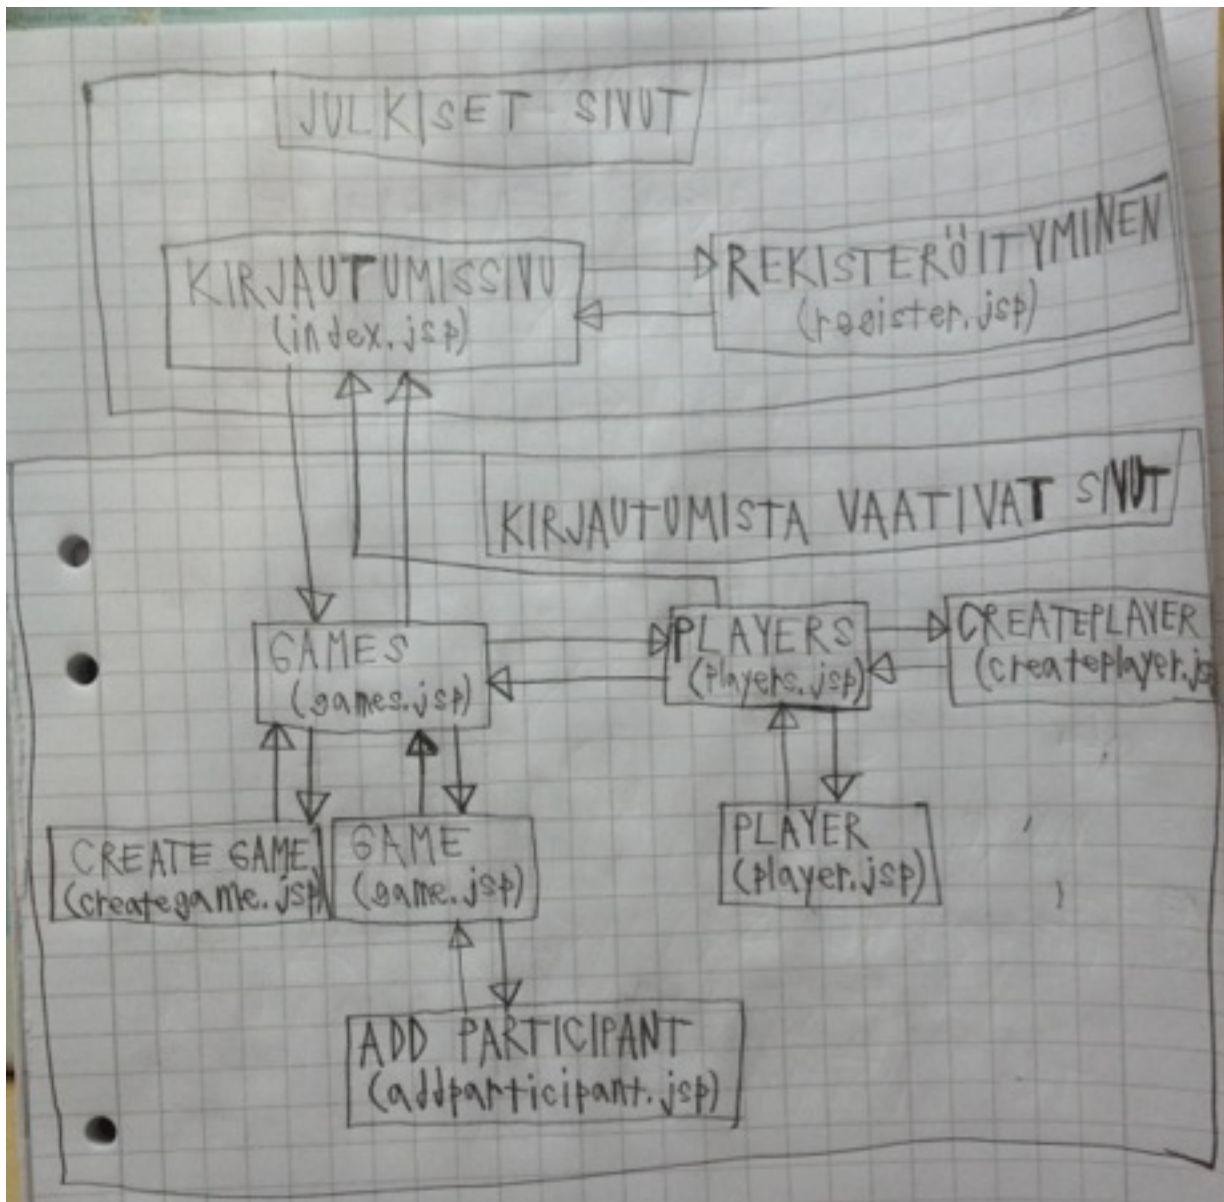 JULKISET SIVUT
KIRJAUTUMISSIVU
(index.jsp)
REKISTERÖITYMINEN
(register.jsp)
KIRJAUTUMISTA VAATIVAT SIVUT
GAMES
(games.jsp)
PLAYERS
(players.jsp)
CREATEPLAYER
(createplayer.js
CREATE GAME
(creategame.jsp)
GAME
(game.jsp)
PLAYER
(player.jsp)
ADD PARTICIPANT
(addparticipant.jsp)